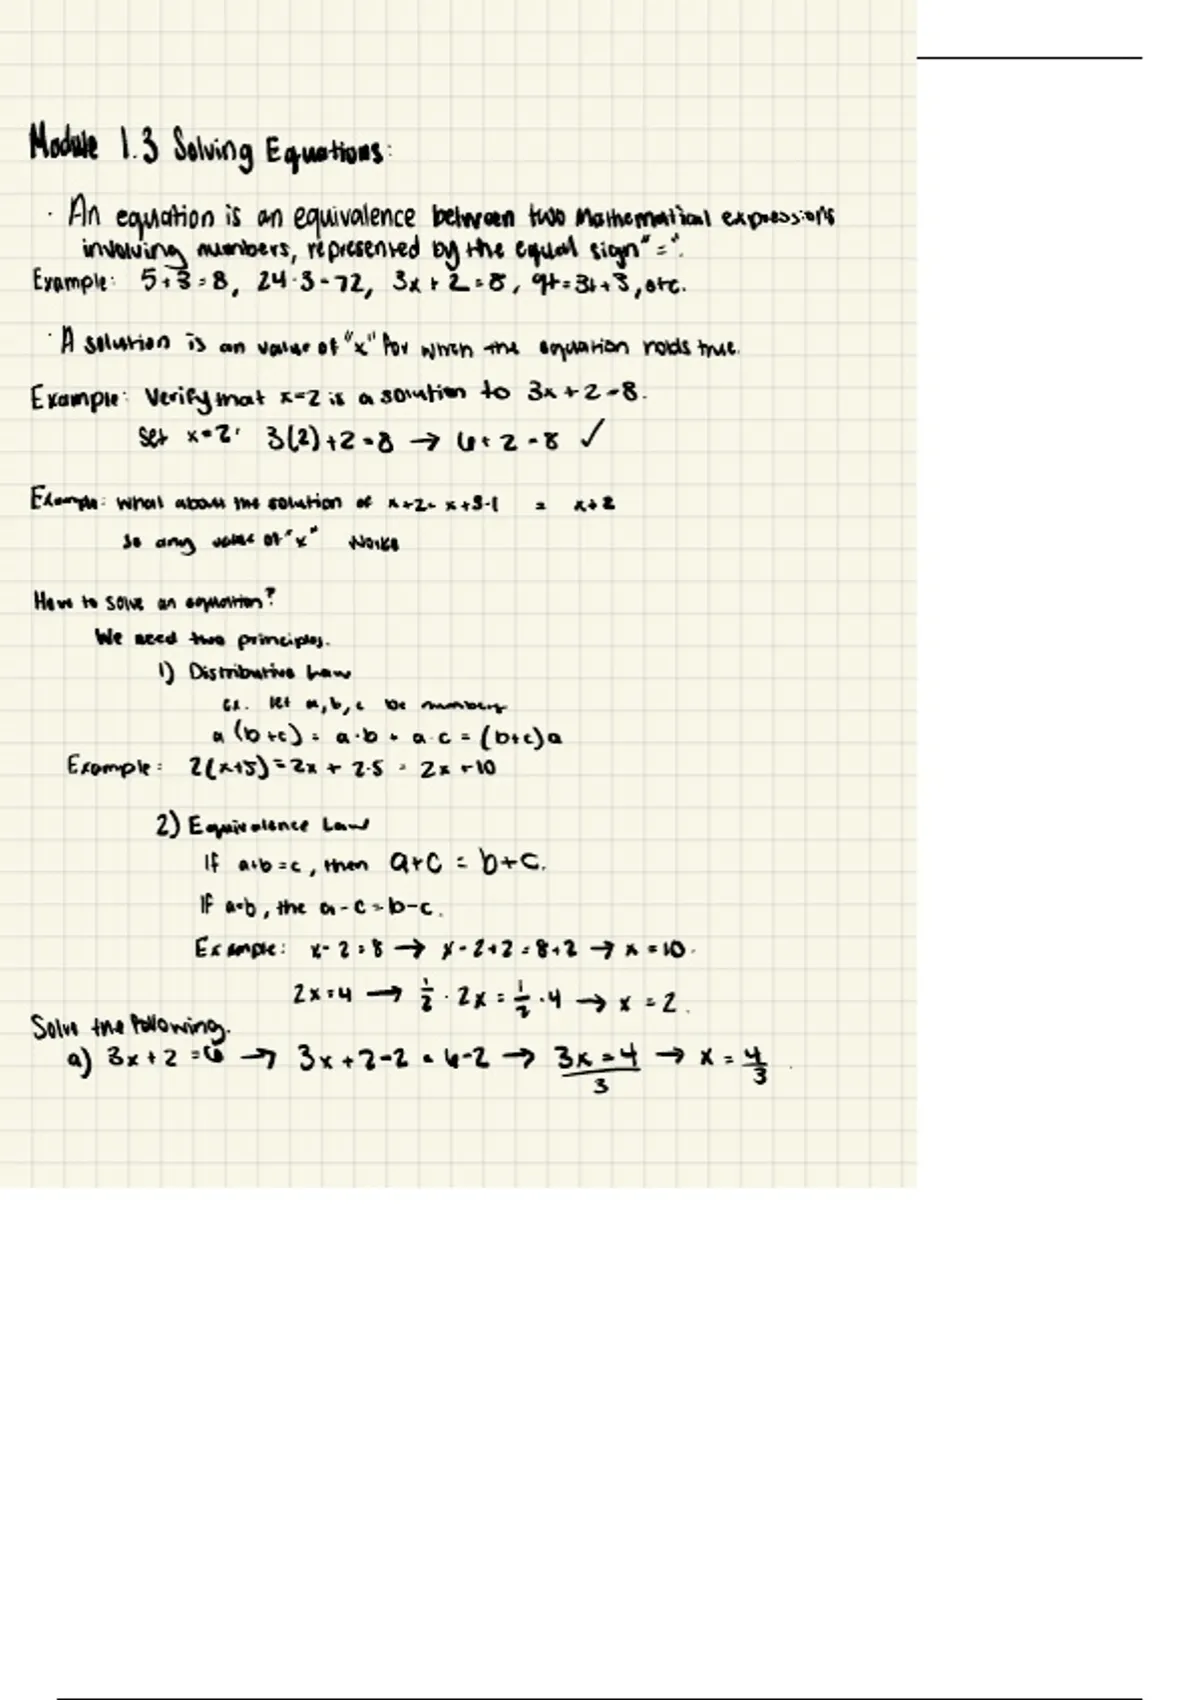 Module 1.3 Solving Equations:
· An equation is an equivalence between two mathematical expressions
involving numbers, represented by the equal sign "=".
Example: 5+3=8, 24·3=72, 3x+2=8, 9t=3t+3, etc.
· A solution is an value of "x" for which the equation holds true.
Example: Verify that x=2 is a solution to 3x+2=8.
Set x=2: 3(2)+2=8 → 6+2=8 ✓
Example: What about the solution of x+2= x+3-1 = x+2
So any value of "x" works
How to solve an equation?
We need two principles.
1) Distributive Law
ex. let a, b, c be numbers
a(b+c) = a·b + a·c = (b+c)a
Example: 2(x+5)=2x + 2·5 = 2x +10
2) Equivalence Law
If a+b=c, then a+c = b+c.
If a=b, the a-c=b-c.
Example: x-2=8 → x-2+2=8+2 → x=10.
2x=4 → 1/2 · 2x = 1/2 · 4 → x = 2.
Solve the following.
a) 3x+2=6 → 3x+2-2=6-2 → 3x=4 → x = 4/3.
3